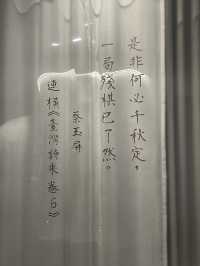 是非何必千秋定，
一局殘棋已了然。
蔡玉屏
連橫《臺灣詩乘卷6》